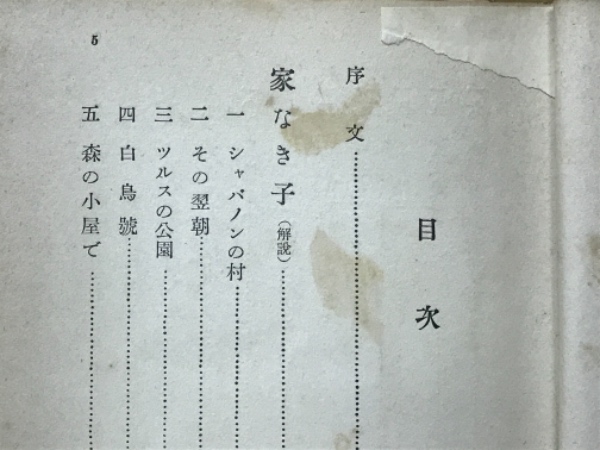 目次
序文
家なき子(解説)
一 シャバノンの村
二 その翌朝
三 ツルスの公園
四 白鳥號
五 森の小屋で
5